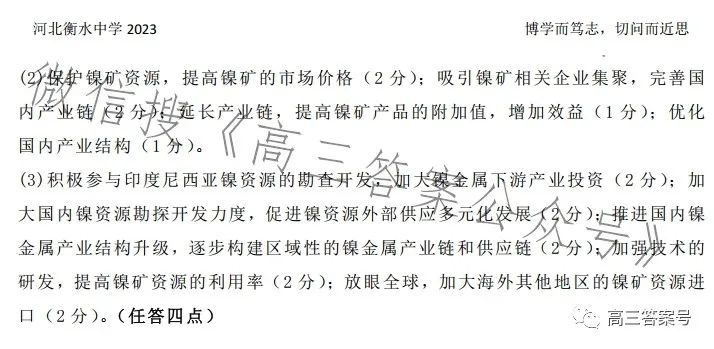 河北衡水中学 2023 博学而笃志，切问而近思
(2)保护镍矿资源，提高镍矿的市场价格（2 分）；吸引镍矿相关企业集聚，完善国
内产业链（2 分）；延长产业链，提高镍矿产品的附加值，增加效益（1 分）；优化
国内产业结构（1 分）。
(3)积极参与印度尼西亚镍资源的勘查开发，加大镍金属下游产业投资（2 分）；加
大国内镍资源勘探开发力度，促进镍资源外部供应多元化发展（2 分）；推进国内镍
金属产业结构升级，逐步构建区域性的镍金属产业链和供应链（2 分）；加强技术的
研发，提高镍矿资源的利用率（2 分）；放眼全球，加大海外其他地区的镍矿资源进
口（2 分）。（任答四点）
微信搜《高三答案公众号》
高三答案号